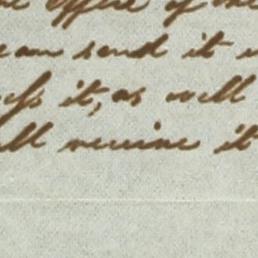 office of the
can send it
it, as well
will receive it